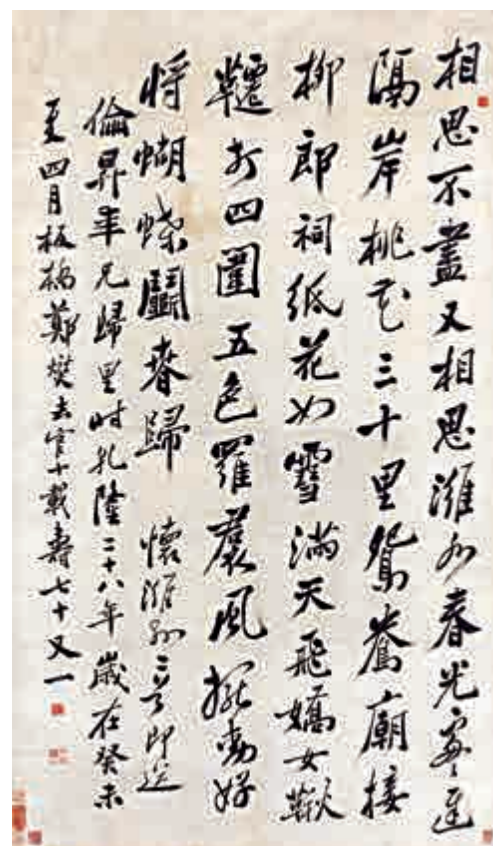 相思不盡又相思濰水春光處〻遲
隔岸桃花三十里鴛鴦廟接
柳郎祠紙花如雪滿天飛嬌女鞦
韆打四圍五色羅裙風擺動好
將蝴蝶鬭春歸 懷濰縣二首即送
倫昇年兄歸里時乹隆二十八年歲在癸未
夏四月板橋鄭燮去官十載壽七十又一